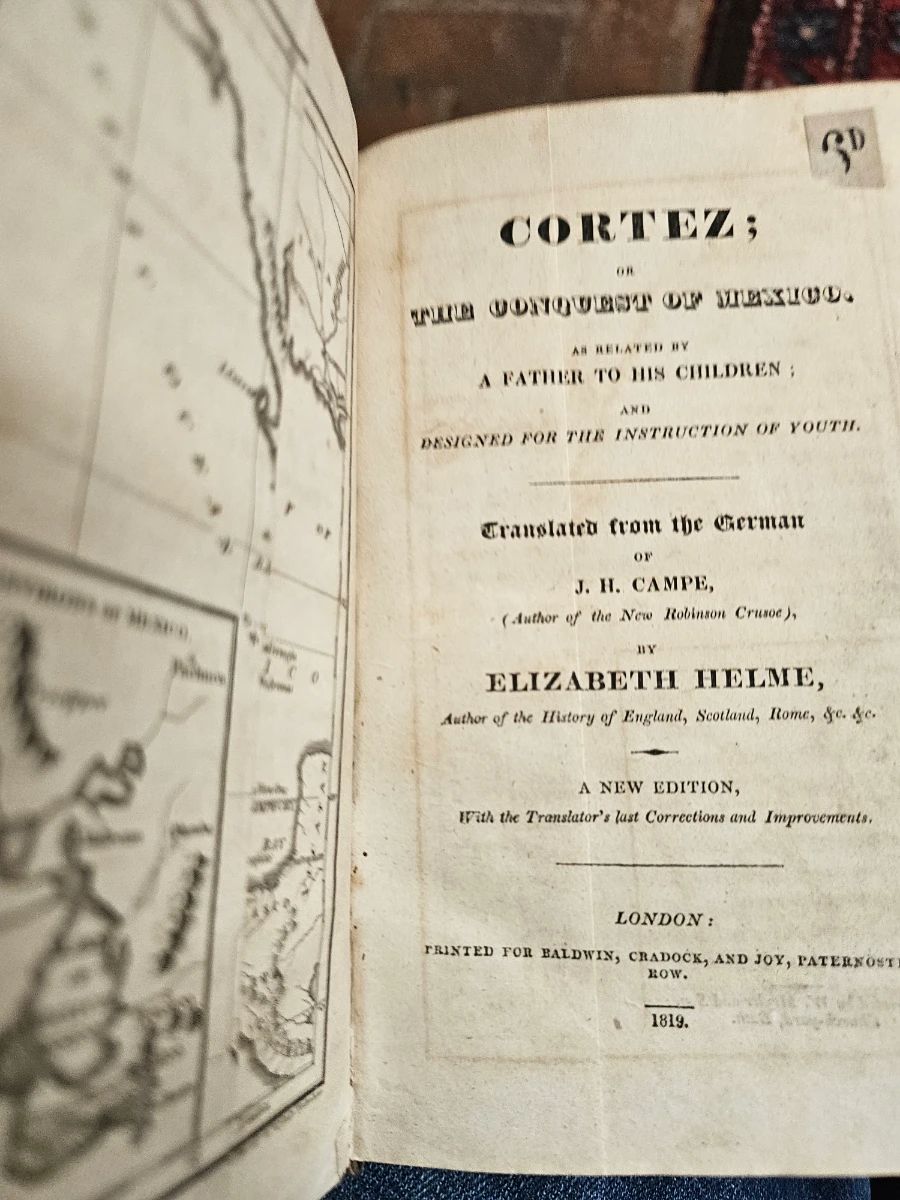 3D
CORTEZ;
OR
THE CONQUEST OF MEXICO.
AS RELATED BY
A FATHER TO HIS CHILDREN;
AND
DESIGNED FOR THE INSTRUCTION OF YOUTH.
Translated from the German
OF
J. H. CAMPE,
(Author of the New Robinson Crusoe),
BY
ELIZABETH HELME,
Author of the History of England, Scotland, Rome, &c. &c.
A NEW EDITION,
With the Translator's last Corrections and Improvements.
LONDON:
PRINTED FOR BALDWIN, CRADOCK, AND JOY,
ROW.
1819.
OF MEXICO